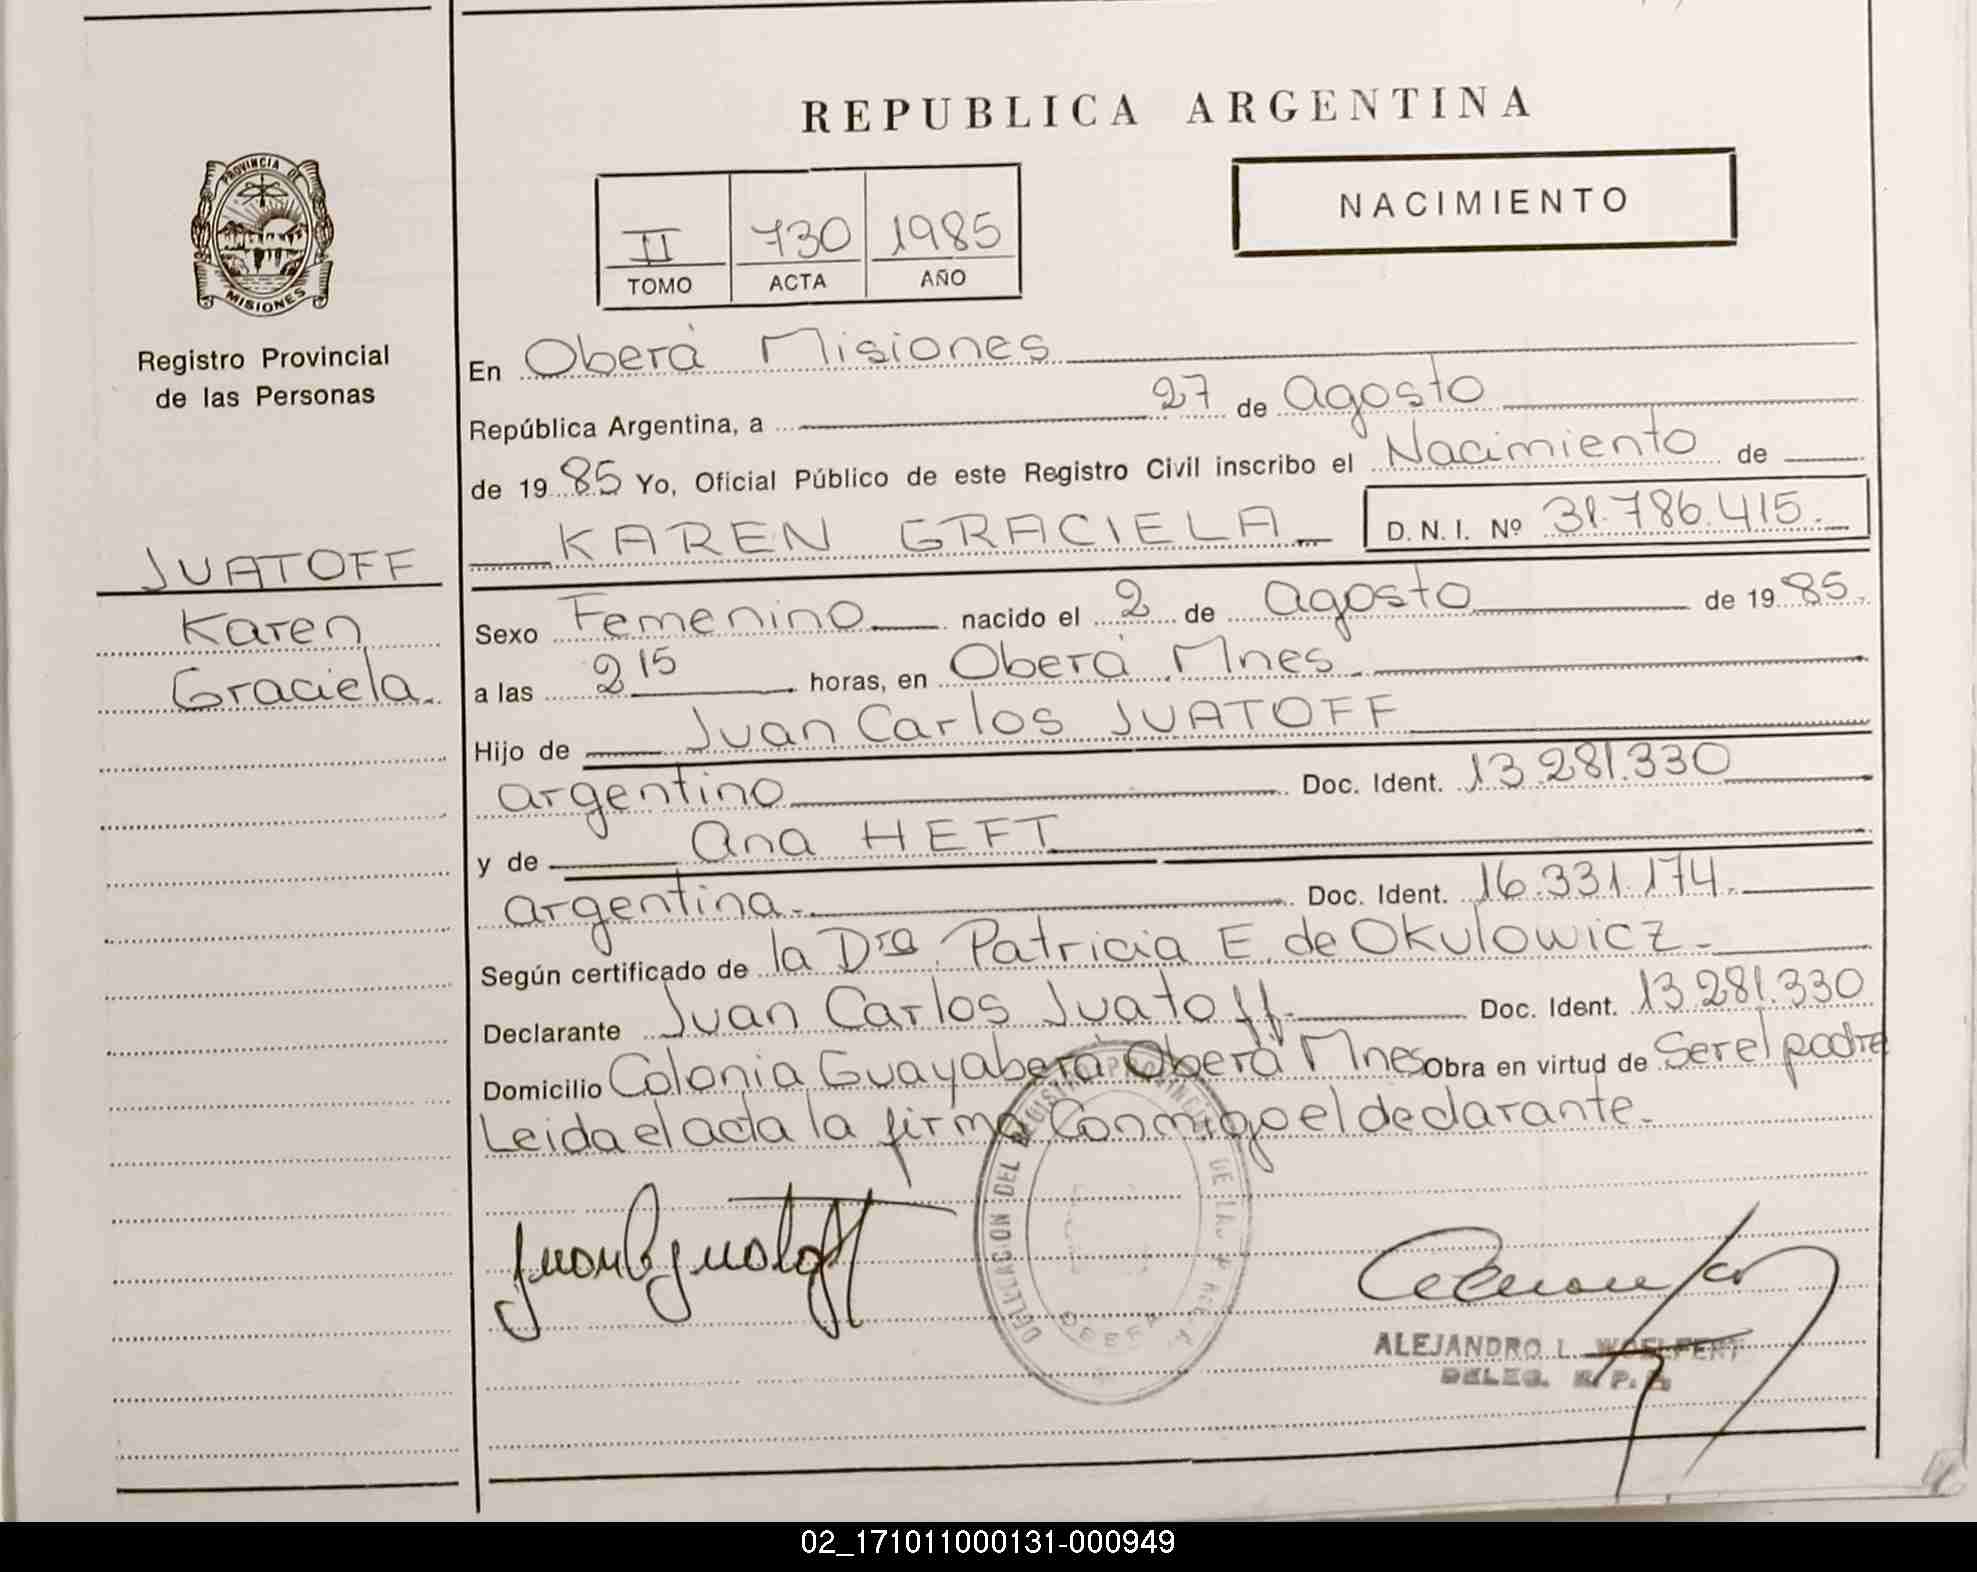 REPUBLICA ARGENTINA
PROVINCIA DE
MISIONES
Registro Provincial
de las Personas
JUATOFF
Karen
Graciela.
II 730 1985
TOMO ACTA AÑO
NACIMIENTO
En Oberá Misiones
República Argentina, a 27 de Agosto
de 19 85 Yo, Oficial Público de este Registro Civil inscribo el Nacimiento de
KAREN GRACIELA D. N. I. Nº 31.786.415.
Sexo Femenino nacido el 2 de Agosto de 19 85.
a las 2 15 horas, en Oberá Mnes.
Hijo de Juan Carlos JUATOFF
argentino Doc. Ident. 13.281.330
y de Ana HEFT
argentina. Doc. Ident. 16.331.174.
Según certificado de la Dra. Patricia E. de Okulowicz.
Declarante Juan Carlos Juatoff. Doc. Ident. 13.281.330
Domicilio Colonia Guayabera Oberá Mnes Obra en virtud de Ser el padre
Leida el acta la firma Conmigo el declarante.
DELEGACION DEL REGISTRO PROVINCIAL DE LAS
ALEJANDRO L. WOELFERT
DELEG. R. P. P.
02_171011000131-000949